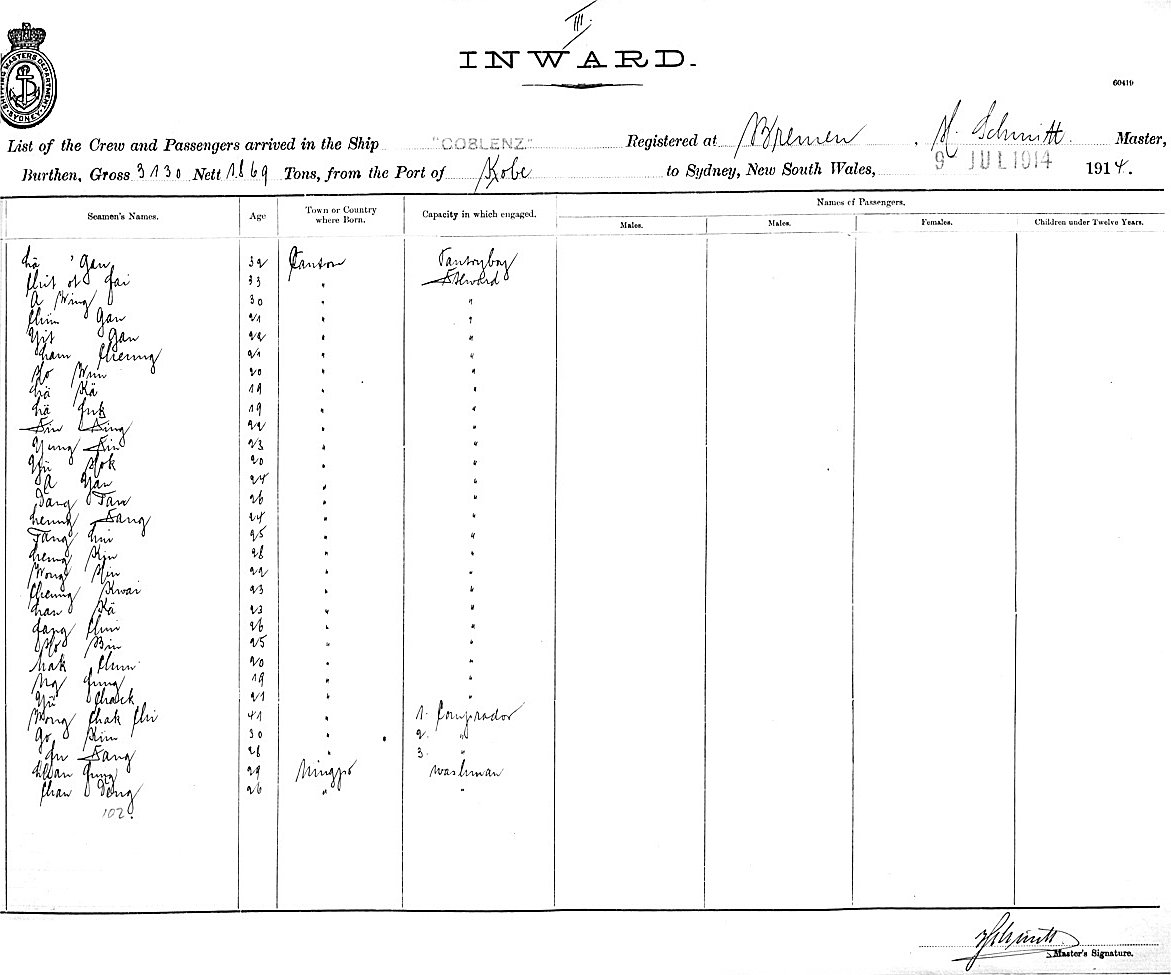 III.
INWARD.
SHIPPING MASTERS DEPARTMENT SYDNEY
60419
List of the Crew and Passengers arrived in the Ship "COBLENZ" Registered at Bremen, M. Schmitt Master,
Burthen, Gross 3130 Nett 1869 Tons, from the Port of Kobe to Sydney, New South Wales, 9 JUL 1914 1914.
Seamen's Names. Age Town or Country where Born. Capacity in which engaged. Names of Passengers.
Males. Males. Females. Children under Twelve Years.
Lä Gan 32 Canton Pantryboy
33 " Steward
A Wing 30 " "
Chim Gan 21 " "
Yit Gan 22 " "
Cheung 21 " "
Ho Wun 20 " "
Lä Kä 19 " "
Lä 19 " "
Sin Sing 22 " "
Yung Sin 23 " "
Yü Hok 20 " "
A Yan 24 " "
Dang Tan 26 " "
Leung Sang 24 " "
Tang 25 " "
Leung Kin 28 " "
Wong Hin 22 " "
Cheung Kwai 23 " "
Lan Kä 23 " "
26 " "
Ho Bin 25 " "
Mak Chun 20 " "
Ng 19 " "
Yü Chack 21 " "
Wong Chak Chi 41 " 1. Comprador
Go Kim 30 " 2. "
Sang 28 " 3. "
29 Ningpo washman
Chan Dong 26 " "
102.
Schmitt
Master's Signature.